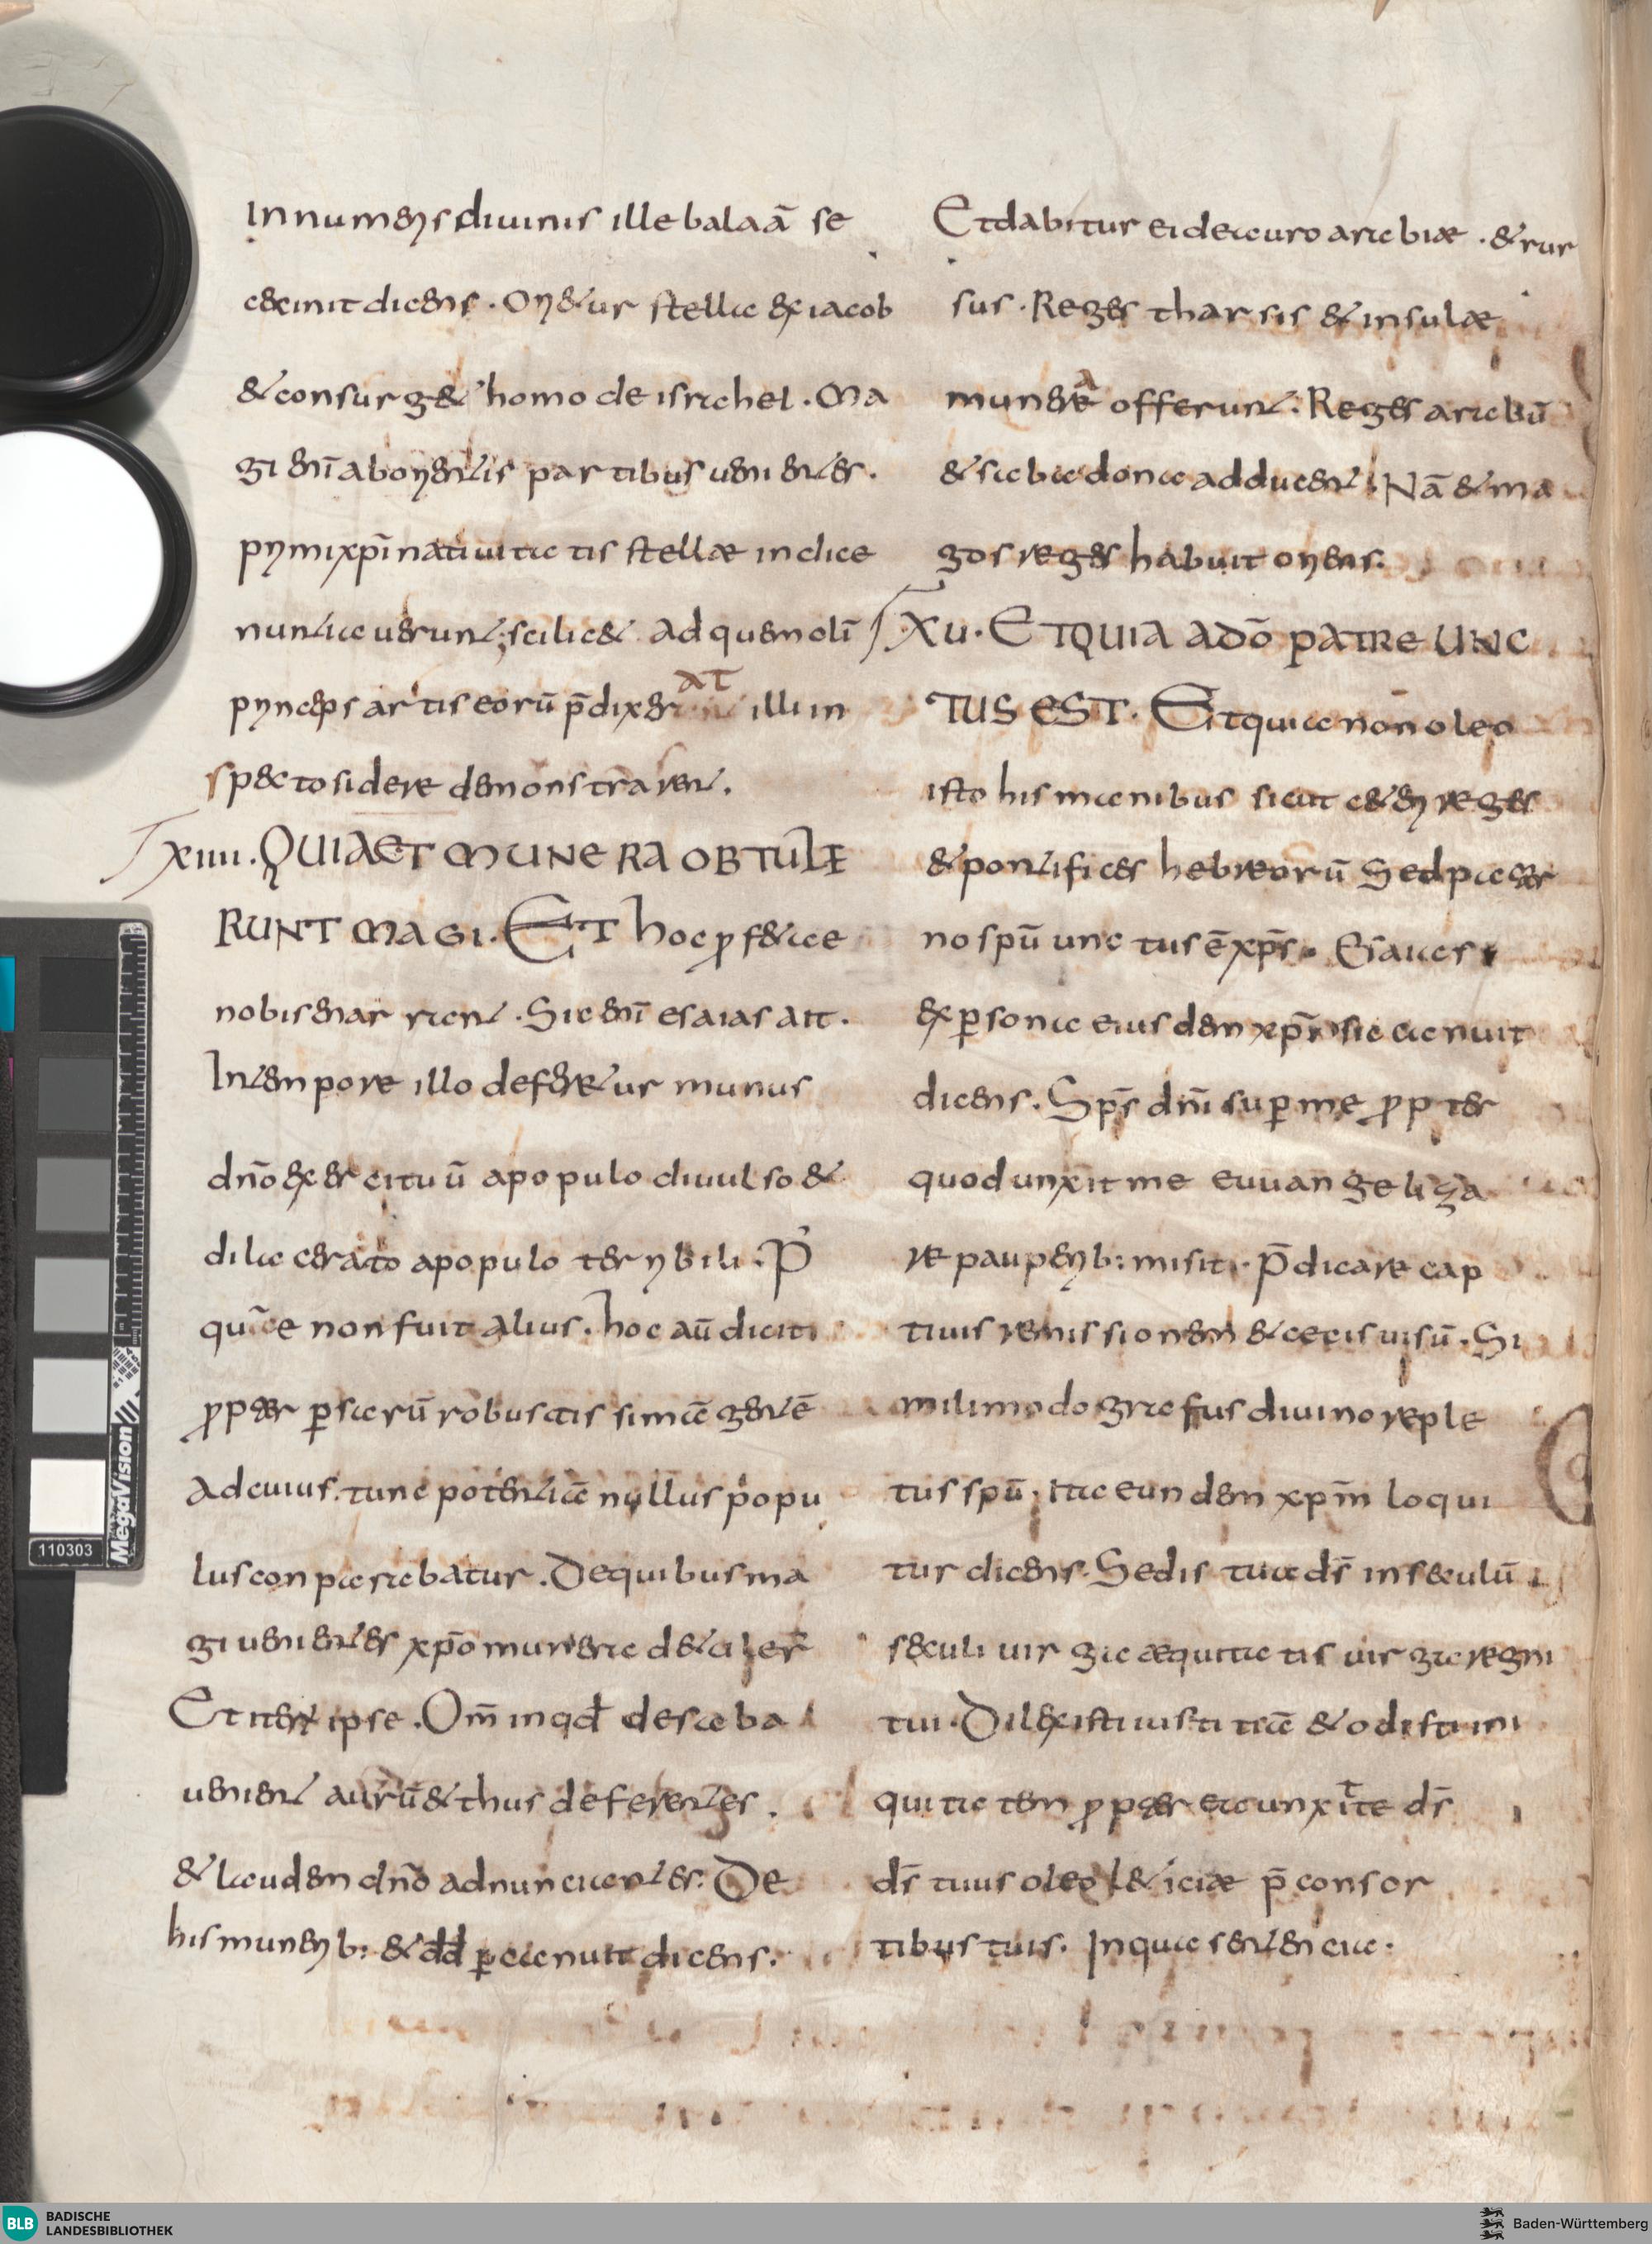 In numeris diuinis ille balaā se
cecinit dicens . Orietur stella ex iacob
& consurg& homo de israhel . Ma
gi enī ab orientis partibus uenientes .
primi xp̄i natiuitatis stellae indice
nuntiauerunt ; scilic& ad quem olī
princeps artis eorū p̄dixer at illi in
specto sidere demonstrarent .
xiiii . QUIA ET MUNERA OBTULE
RUNT MAGI . ET hoc profetae
nobis enarrant . Sic enī esaias ait .
In tempore illo defer&ur munus
dn̄o exercituū a populo diuulso &
dilacerato a populo terribili . P
quā e non fuit alius . hoc aū dicit
propter persarū robustissimā gentē
Ad cuius tunc potentiā nullus popu
lus conparabatur . De quibus ma
gi uenientes xp̄o munera detuler̄
Et iter ipse . Om̄ inqd de saba
uenient aurū & thus deferentes .
& laudem dn̄o adnunciantes . De
his munerib: & dd̄ p cecinuit dicens .
Et dabitur ei de auro arabiae . & rur
sus . Reges tharsis & insulae
munera offerunt . Reges arabū
& saba dona adducent . Nā & ma
gos reges habuit oriens .
xu . ET QUIA A DŌ PATRE UNC
TUS EST . Et quia non oleo
isto his manibus sicut ceteri reges
& pontifices hebreorū Sed pater
no spū unctus ē xp̄s . Esaias
ex persona eiusdem xp̄i sic cecinuit
dicens . Sp̄s dn̄i super me propter
quod unxit me euuangeliza
re pauperib: misit . p̄dicare cap
tiuis remissionem & cecis uisū . Si
mili modo grafus diuino reple
tus spū . ita eundem xpm̄ loqui
tur dicens . Sedis tua ds̄ in seculū
seculi uirga aequitatis uirga regni
tui . Dilexisti iustitiā & odisti ini
quitatem propter ea unxit te ds̄
ds̄ tuus oleo l&iciae p̄ consor
tibus tuis . In qua sententia .
110303
MegaVision
BLB
BADISCHE
LANDESBIBLIOTHEK
Baden-Württemberg